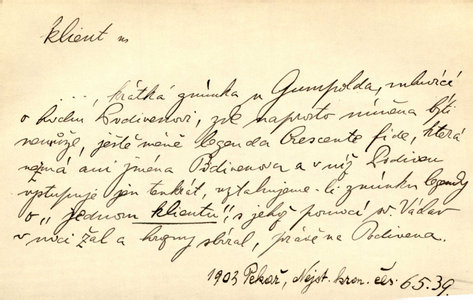 klient m
....., krátká zmínka u Gumpolda, mluvící
o druhu Podivenovi, zde naprosto míněna býti
nemůže, ještě méně legenda Crescente fide, která
nezná ani jména Podivenova a v níž Podiven
vystupuje jen tenkát, vztahujeme-li zmínku legendy
o "jednom klientu", s jehož pomocí sv. Václav
v noci žal a hrozny sbíral, právě na Podivena.
1903 Pekař, Nejst. kron. čes. 65.39.